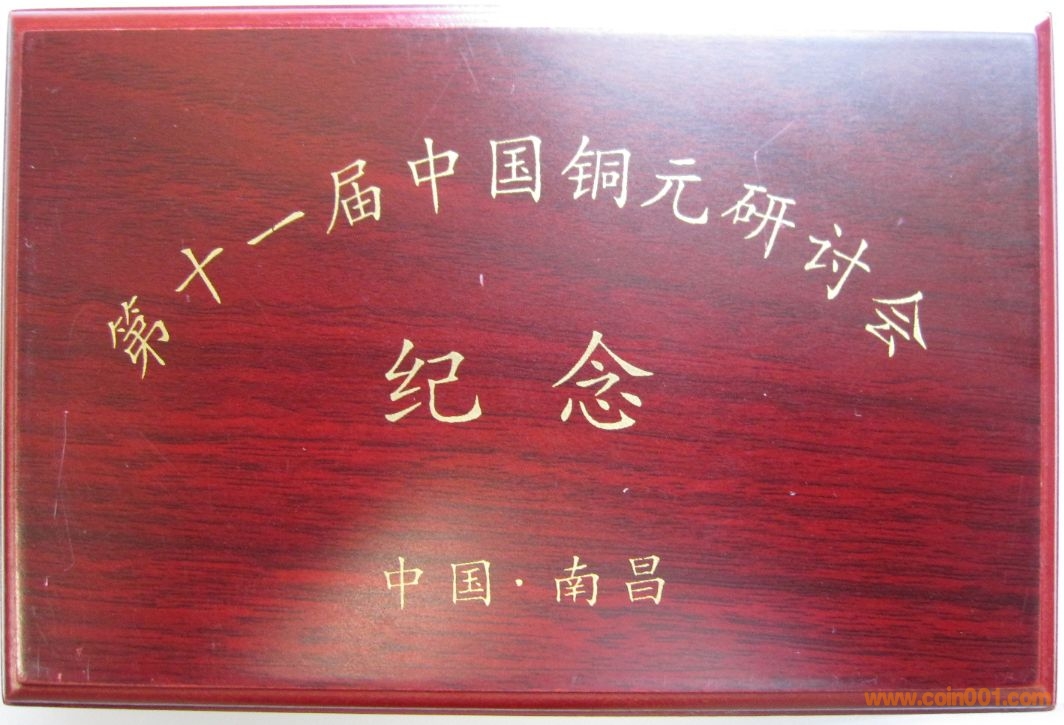 第十一届中国铜元研讨会
纪念
中国·南昌
www.coin001.com